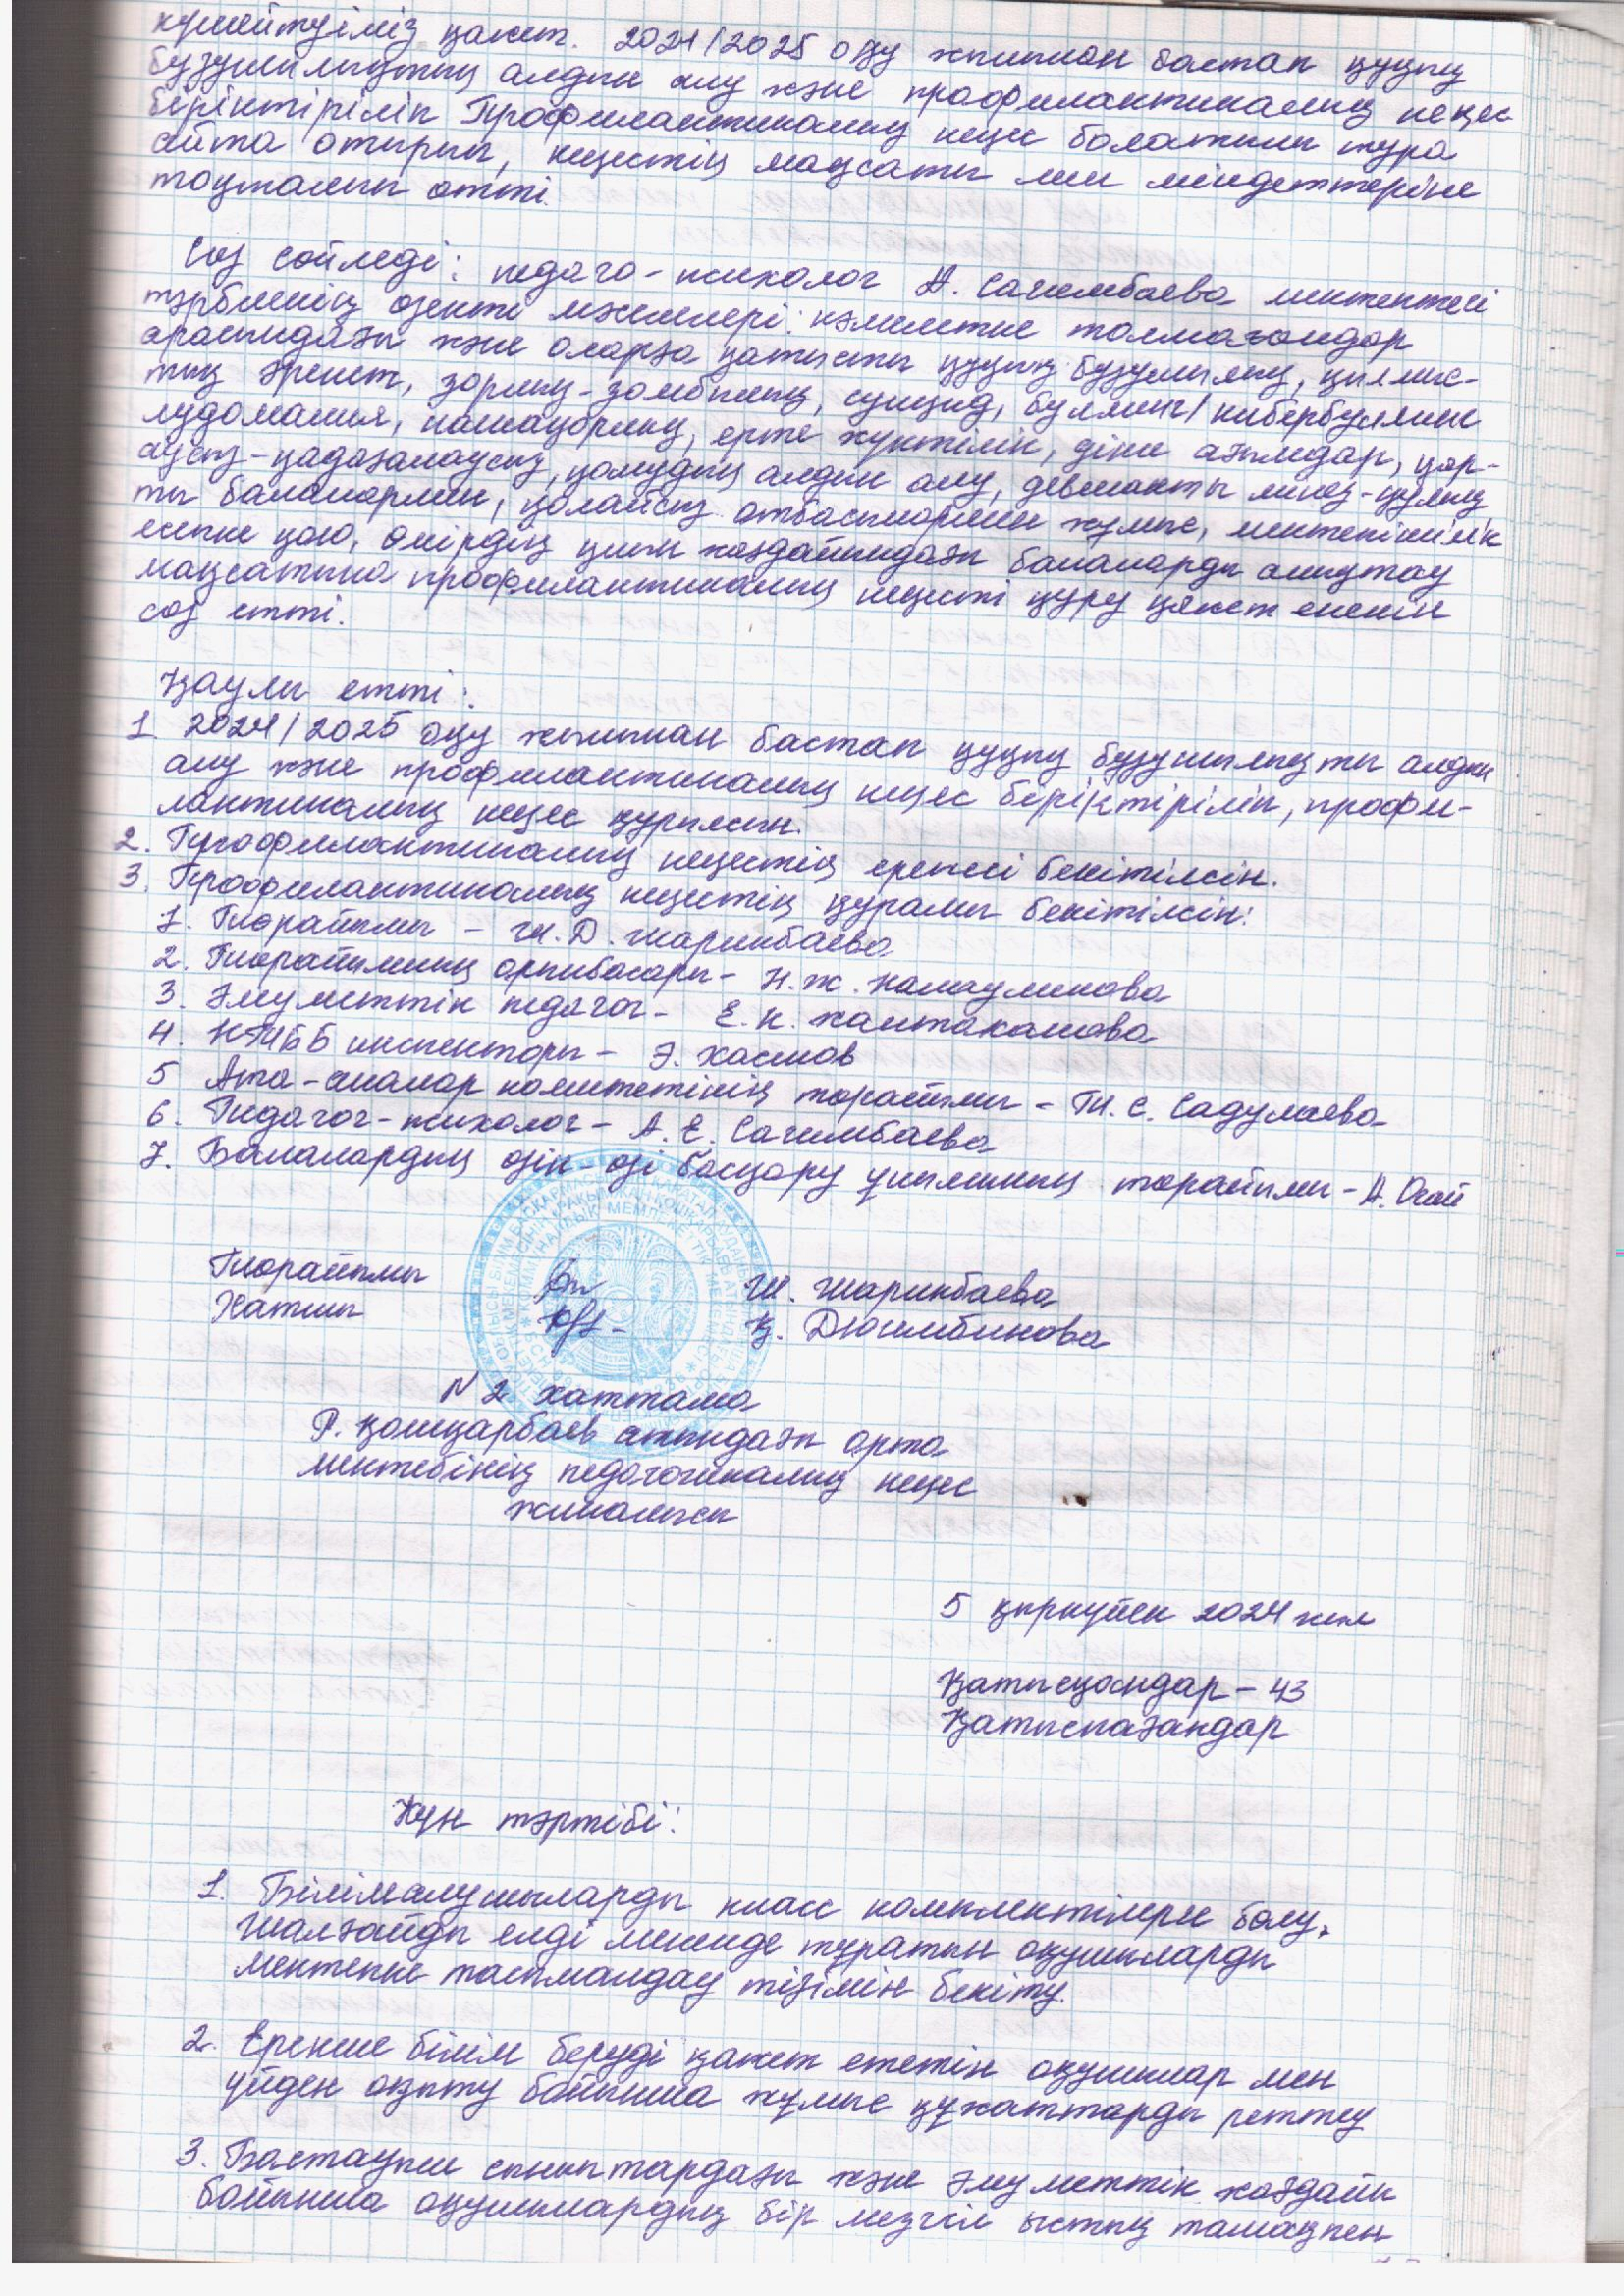 күшейтуіміз қажет. 2024/2025 оқу жылынан бастап құқық
бұзушылықтың алдын алу және профилактикалық кеңес
беріктіріліп Профилактикалық кеңес болатыны тура
айта отырып, кеңестің мақсаты мен міндеттеріне
тоқталып өтті.
Сөз сөйледі: педаго-психолог А. Сагимбаева мектептегі
тәрбиенің өзекті мәселелері: кәмелетке толмағандар
арасындағы және оларға қатысты құқық бұзушылық, қылмыс-
тық әрекет, зорлық-зомбылық, суицид, буллинг/кибербуллинг
лудомания, нашақорлық, ерте жүктілік, діни ағымдар, қар-
аусыз-қадағалаусыз, қалудың алдын алу, девиантты мінез-құлық
ты балалармен, қолайсыз отбасылармен жұмыс, мектепішілік
есепке қою, өмірдің қиын жағдайындағы балаларды анықтау
мақсатында профилактикалық кеңесті құру қажет екенін
сөз етті.
Қаулы етті:
1. 2024/2025 оқу жылынан бастап құқық бұзушылықты алдын
алу және профилактикалық кеңес беріктіріліп, профи-
лактикалық кеңес құрылсын.
2. Профилактикалық кеңестің ережесі бекітілсін.
3. Профилактикалық кеңестің құрамы бекітілсін:
1. Төрайымы - Ш.Д. Шарипбаева
2. Төрайымның орынбасары - Н.Ж. Камаулинова
3. Әлуметтік педагог - Е.К. Жантаканова
4. КТІББ инспекторы - Э. Хасенов
5 Ата-аналар комитетінің төрайымы - Т.С. Садулаева
6. Педагог-психолог - А.Е. Сагимбаева
7. Балалардың өзін-өзі басқару ұйымының төрайымы - А. Осай
Төрайымы Ш. Шарипбаева
Хатшы Қ. Дюсембинова
N 2 хаттама
Р. Қошқарбаев атындағы орта
мектебінің педогогикалық кеңес
жиналысы
5 қыркүйек 2024 жыл
Қатысқандар - 43
Қатыспағандар
Күн тәртібі:
1. Білімалушыларды класс комплектілерге бөлу,
Шалғайды елді мекенде тұратын оқушыларды
мектепке тасымалдау тізімін бекіту.
2. Ерекше білім беруді қажет ететін оқушылар мен
үйден оқыту бойынша жұмыс құжаттарды реттеу
3. Бастауыш сыныптардағы және әлуметтік жағдайы
бойынша оқушылардың бір мезгіл ыстық тамақпен